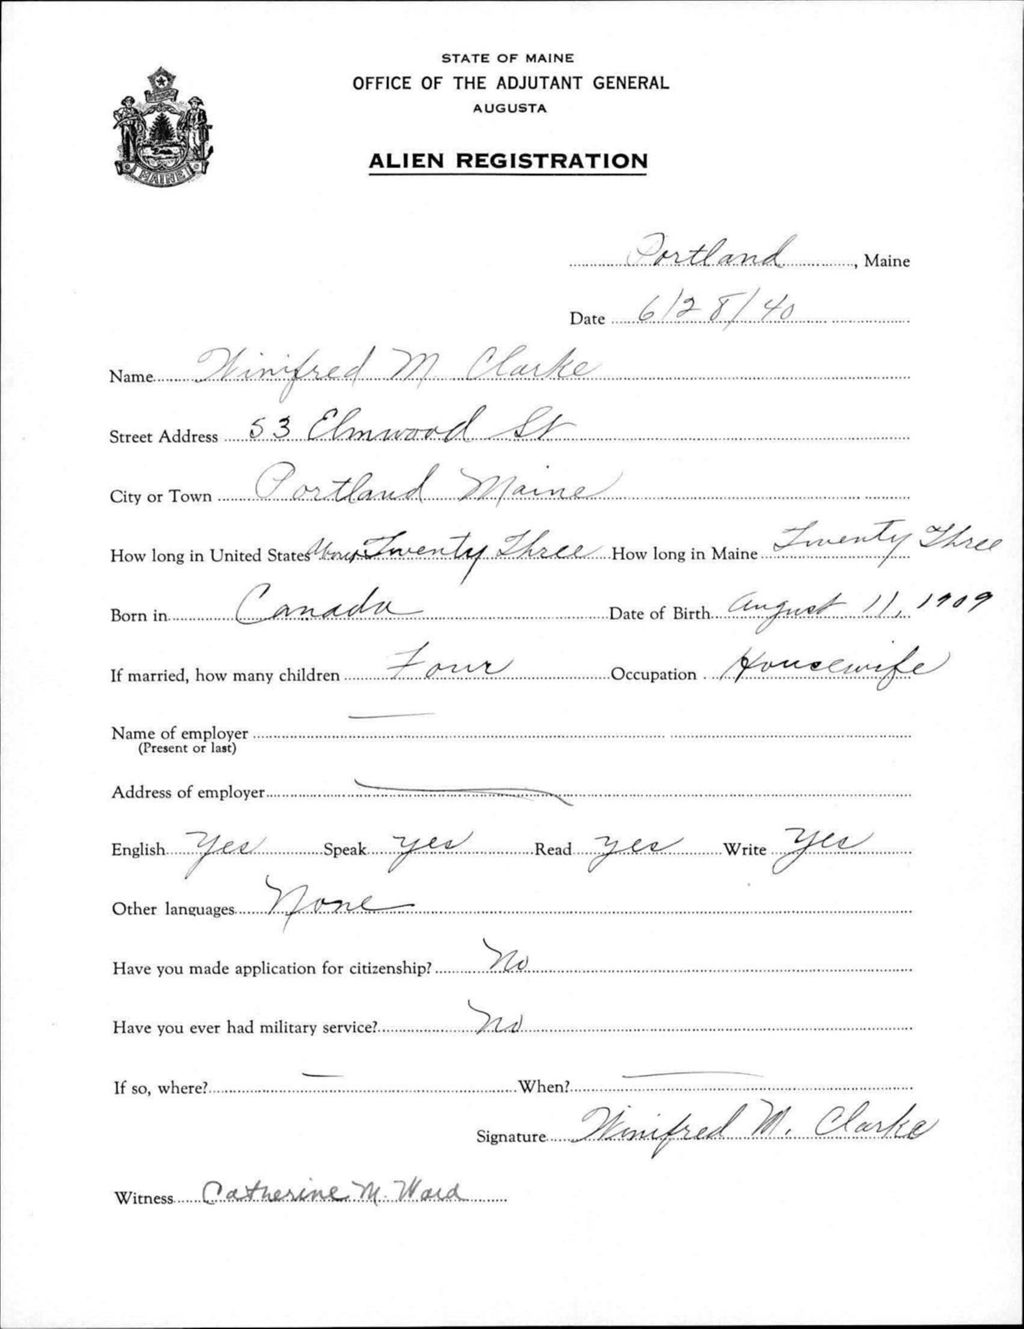 STATE OF MAINE
OFFICE OF THE ADJUTANT GENERAL
AUGUSTA
ALIEN REGISTRATION
MAINE
Portland, Maine
Date 6/28/40
Name Winifred M Clarke
Street Address 53 Elmwood St
City or Town Portland Maine
How long in United States Twenty Three How long in Maine Twenty Three
Born in Canada Date of Birth August 11, 1909
If married, how many children Four Occupation Housewife
Name of employer
(Present or last)
Address of employer
English Yes Speak yes Read yes Write Yes
Other languages None
Have you made application for citizenship? No
Have you ever had military service? No
If so, where? When?
Signature Winifred M. Clarke
Witness Catherine M. Ward